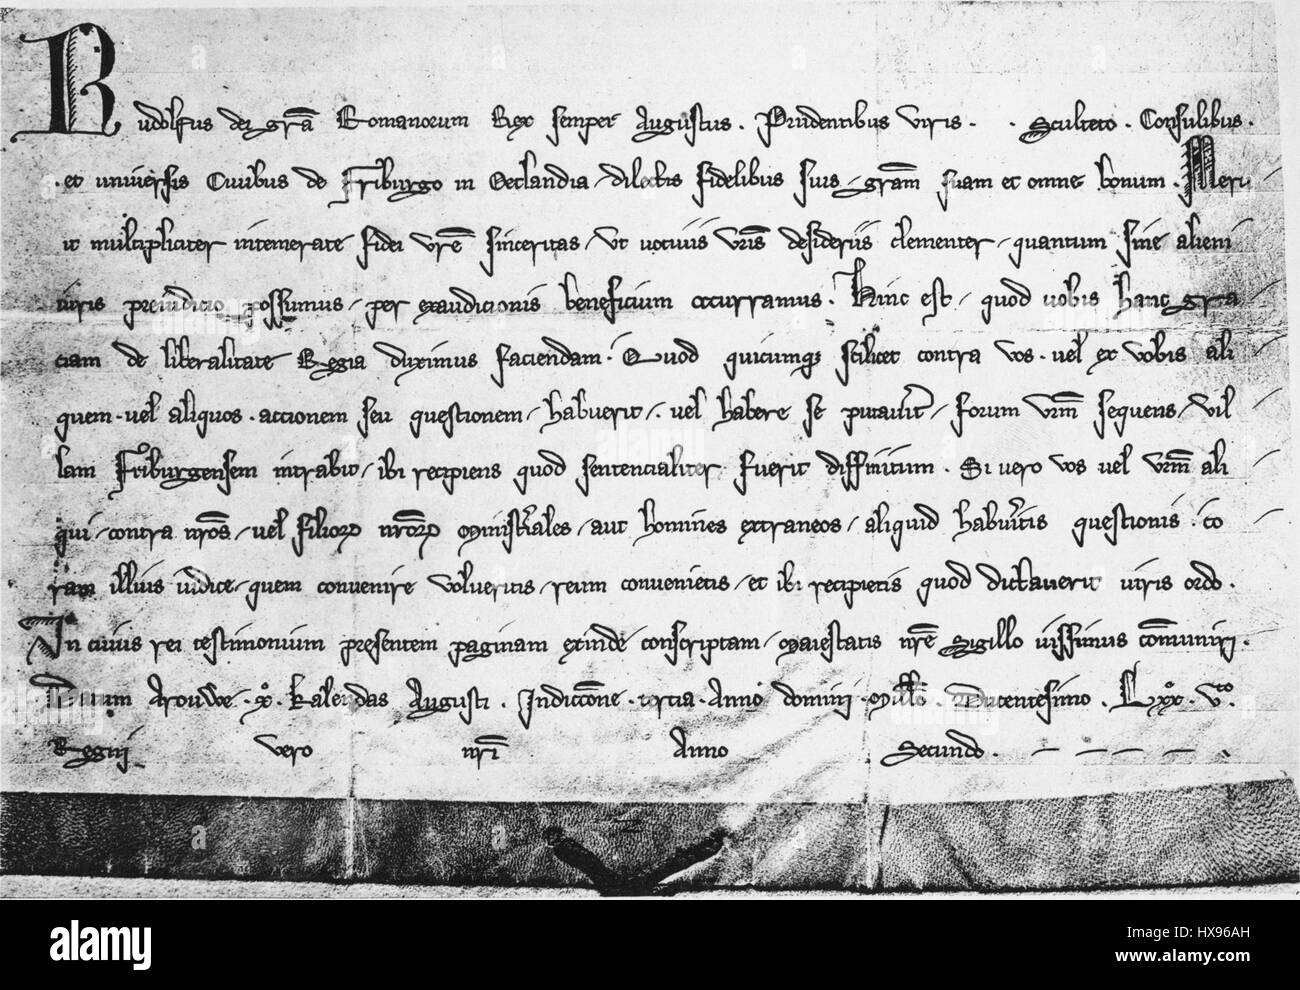 Rudolfus dei gr̄a Romanorum Rex semper Augustus. Prudentibus viris. . Sculteto. Consulibus.
. et universis Civibus de Friburgo in Oetlandia / dilectis fidelibus suis / gr̄am suam et omne bonum. Meru /
it multipliciter intemerate fidei vr̄e sinceritas / ut votivis vr̄is desideriis clementer / quantum sine alieni /
iuris preiudicio possumus / per exaudicionis beneficium occurramus. Hinc est / quod vobis hanc gra /
ciam de liberalitate Regia duximus faciendam. Quod quicumq; scilicet contra vos. vel ex vobis ali /
quem. vel aliquos. accionem seu questionem / habuerit /. vel habere se putav̄it / forum vr̄m sequens / vil /
lam Friburgensem intrabit / ibi recipiens quod sentencialiter fuerit diffinitum. Si vero vos vel vr̄m ali /
qui / contra nr̄os / vel filiorꝝ nr̄orꝝ Ministrales / aut homines extraneos / aliquid habueritis questionis. co /
ram illius iudice / quem convenire volueritis / reum convenietis / et ibi recipietis quod dictaverit iuris ordo.
In cuius rei testimonium presentem paginam exinde conscriptam / Maiestatis nr̄e Sigillo iussimus com̄uniri.
Datum Arouwe. x. kalendas Augusti. Indicc̄one. tercia. Anno domini. Mill̄o. Ducentesimo. Lxx. v.to
Regni vero nr̄i Anno Secundo. — — — — — .
alamy
HX96AH
www.alamy.com